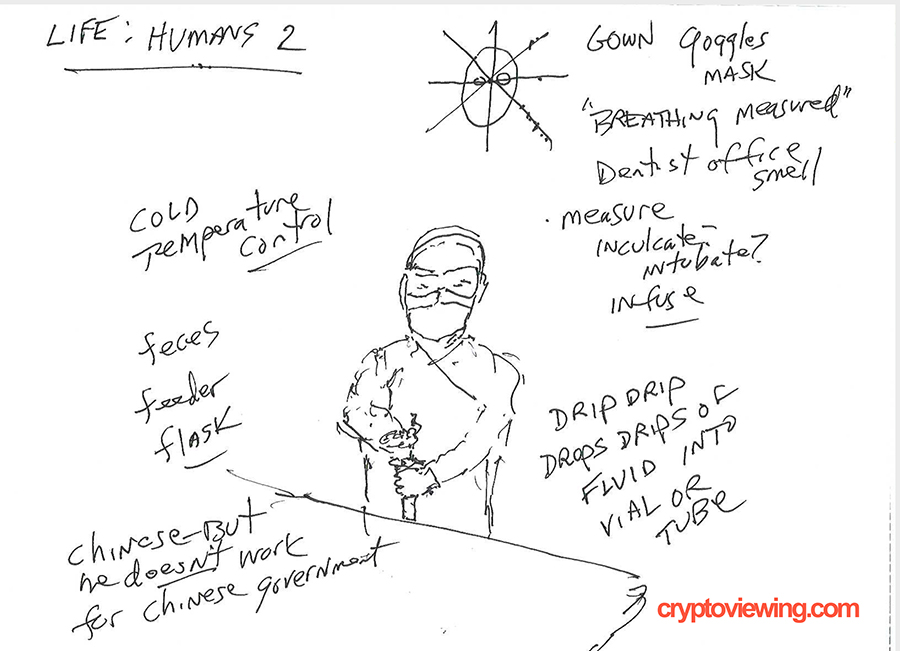 LIFE: HUMANS 2
GOWN Goggles
MASK
"BREATHING measured"
Dentist office
smell
· measure
INCULCATE-
INTUBATE?
INFUSE
COLD
Temperature
control
feces
feeder
flask
DRIP DRIP
DROPS DRIPS OF
FLUID INTO
VIAL OR
TUBE
Chinese-But
he doesn't work
for Chinese government
cryptoviewing.com